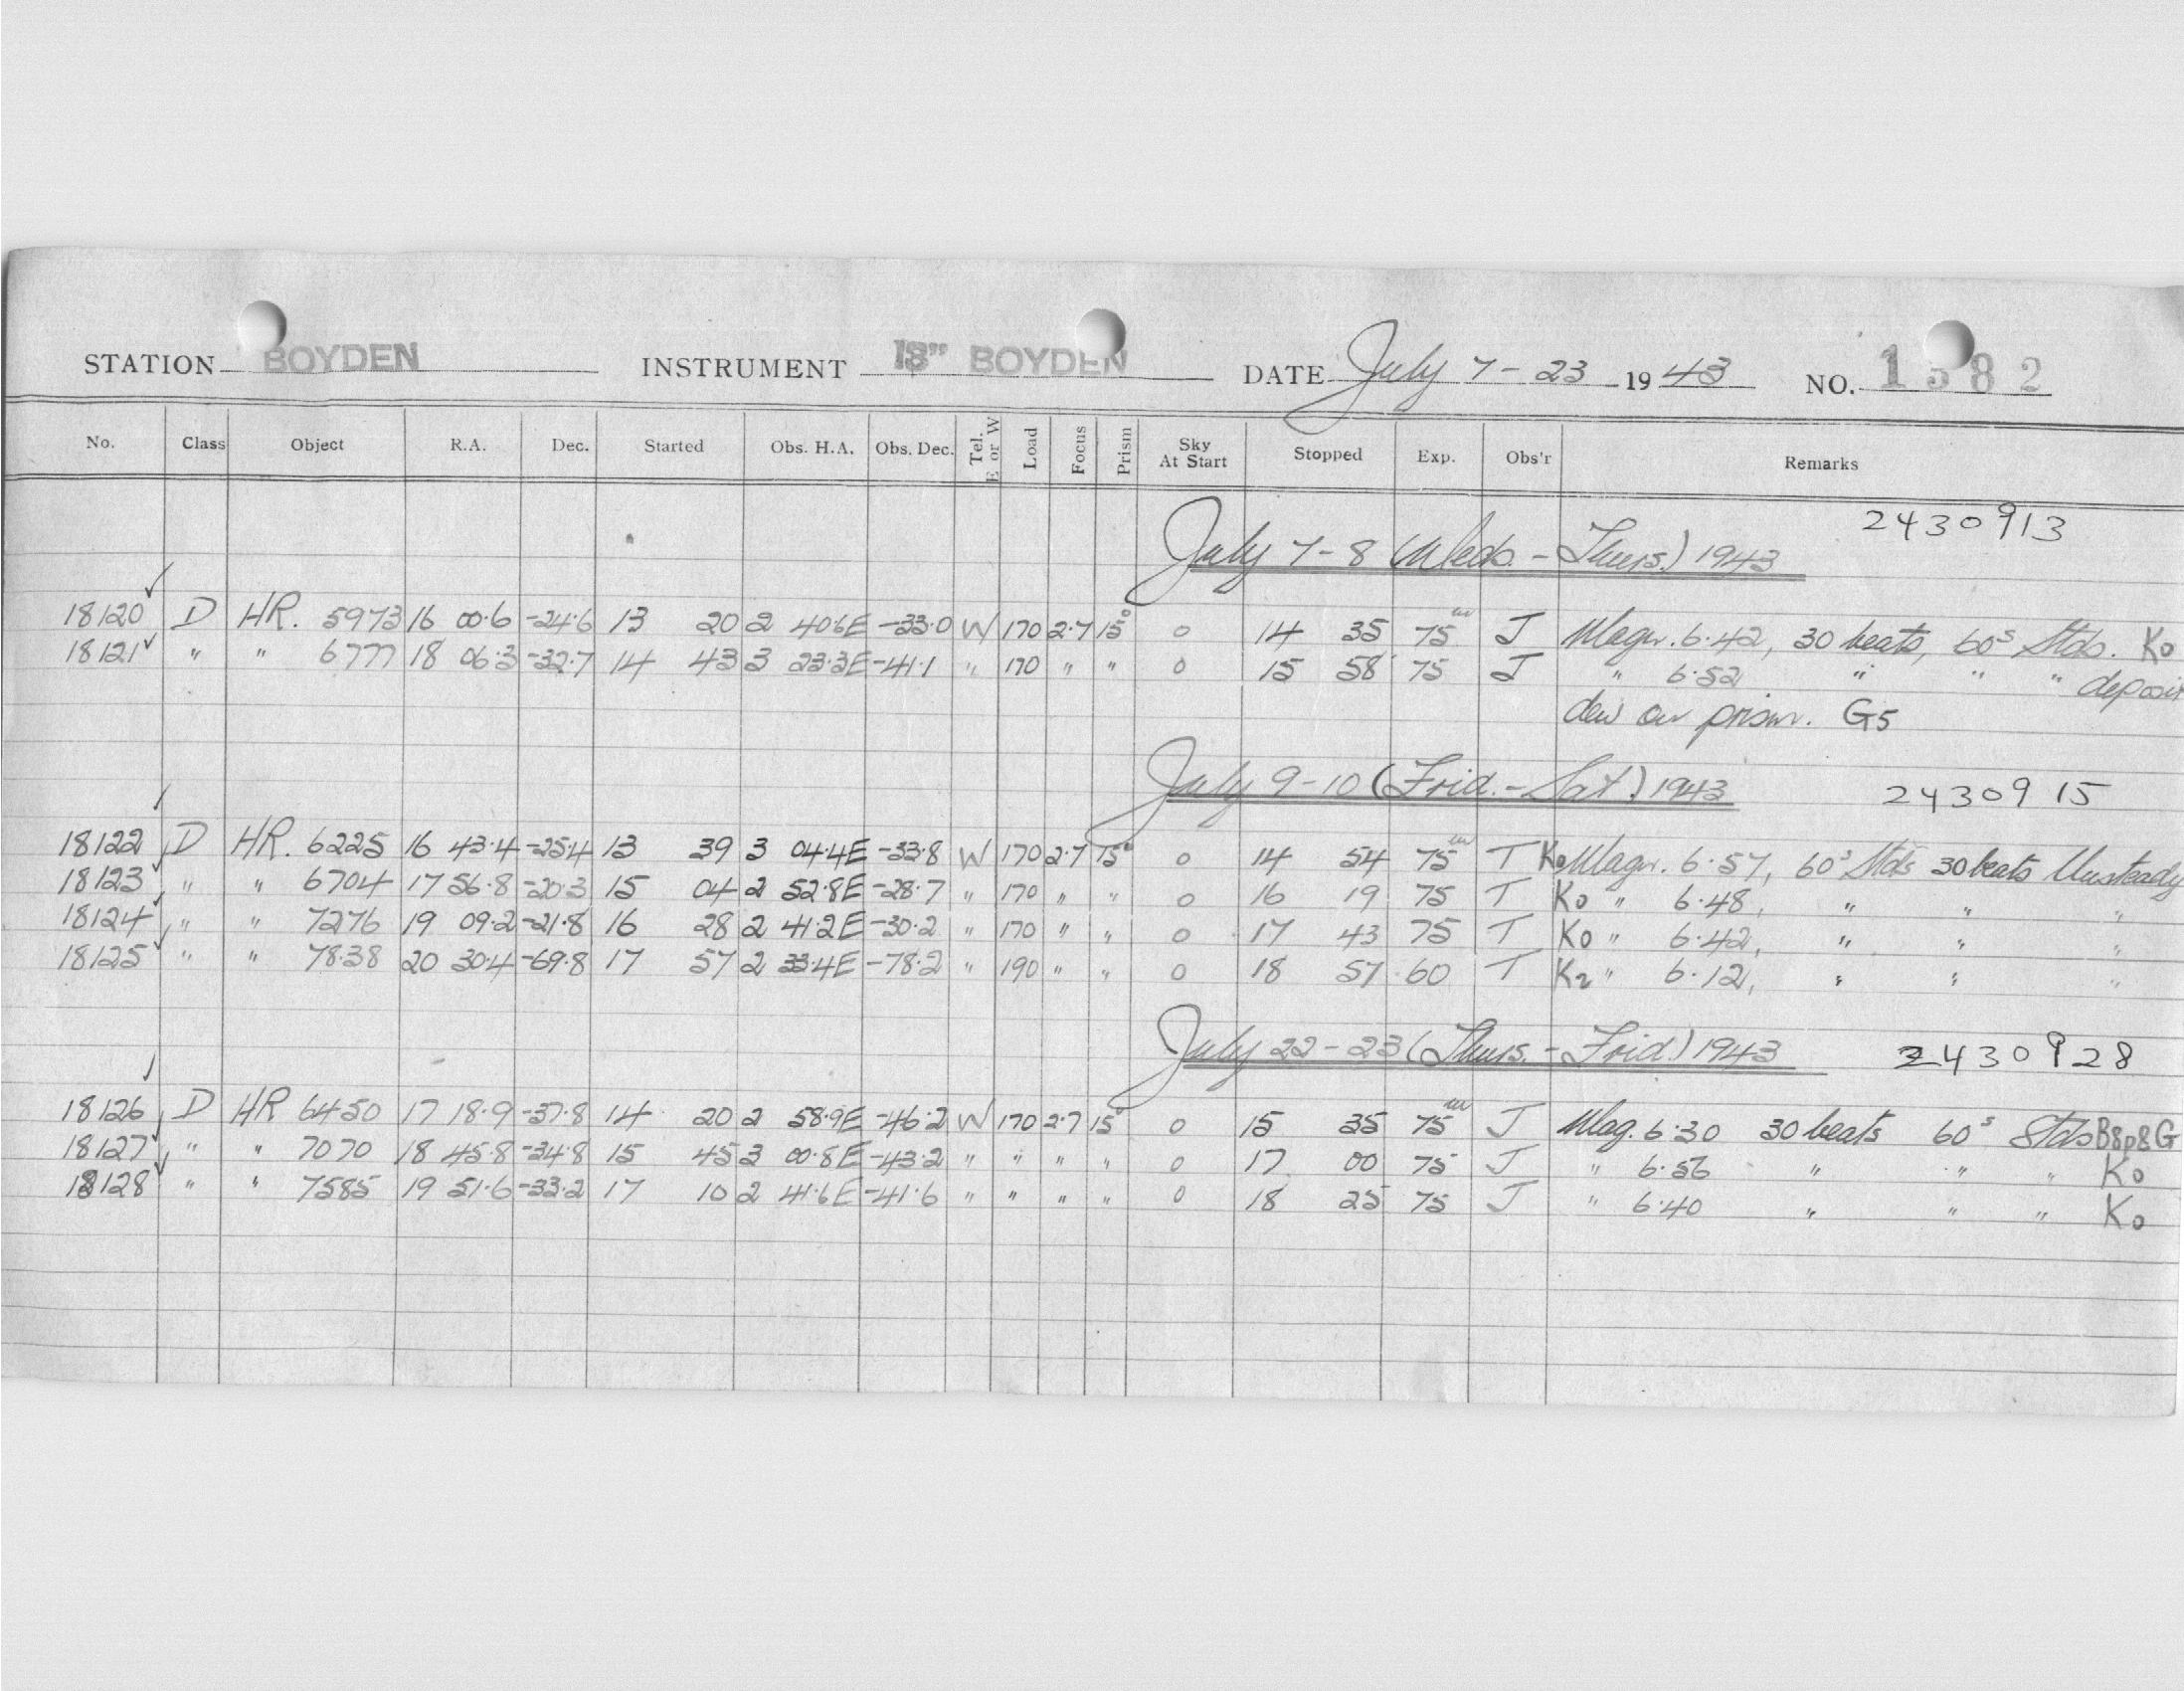 STATION BOYDEN INSTRUMENT 18" BOYDEN DATE July 7-23 1943 NO. 1582
No. Class Object R.A. Dec. Started Obs. H.A. Obs. Dec. Tel. E or W Load Focus Prism Sky At Start Stopped Exp. Obs'r Remarks
July 7-8 (Weds. - Thurs.) 1943 2430913
18120 ✓ D HR. 5973 16 00.6 -24.6 13 20 2 40.6E -33.0 W 170 2.7 15° 0 14 35 75m J Magn. 6.42, 30 beats, 60s Stds. K0
18121 ✓ " " 6777 18 06.3 -32.7 14 43 3 23.3E -41.1 " 170 " " 0 15 58 75 J " 6.52 " " " deposit
dew on prism. G5
July 9-10 (Frid. - Sat.) 1943 2430915
18122 ✓ D HR. 6225 16 43.4 -25.4 13 39 3 04.4E -33.8 W 170 2.7 15° 0 14 54 75m T K0 Magn. 6.57, 60s Stds 30 beats Unsteady
18123 ✓ " " 6704 17 56.8 -20.3 15 04 2 52.8E -28.7 " 170 " " 0 16 19 75 T K0 " 6.48, " " "
18124 ✓ " " 7276 19 09.2 -21.8 16 28 2 41.2E -30.2 " 170 " " 0 17 43 75 T K0 " 6.42, " " "
18125 ✓ " " 7838 20 30.4 -69.8 17 57 2 33.4E -78.2 " 190 " " 0 18 57 60 T K2 " 6.12, " " "
July 22-23 (Thurs. - Frid.) 1943 2430928
18126 ✓ D HR 6450 17 18.9 -37.8 14 20 2 58.9E -46.2 W 170 2.7 15° 0 15 35 75m J Mag. 6.30 30 beats 60s Stds B8p&G
18127 ✓ " " 7070 18 45.8 -34.8 15 45 3 00.8E -43.2 " " " " 0 17 00 75 J " 6.56 " " " K0
18128 ✓ " " 7585 19 51.6 -33.2 17 10 2 41.6E -41.6 " " " " 0 18 25 75 J " 6.40 " " " K0